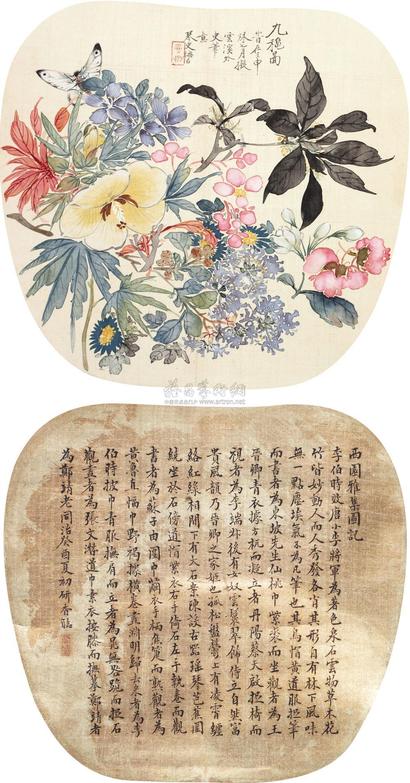 九穐啚
雲溪外
史筆
意
西園雅集圖記
李伯時效唐小李將軍為著色泉石雲物草木花
竹皆妙動人而人秀發各肖其形自有林下風味
無一點塵埃氣不為凡筆也其烏帽黃道服捉筆
而書者為東坡先生仙桃巾紫裘而坐觀者為王
晉卿青衣據方机而凝立者丹陽蔡天啟捉椅而
視者為李端叔後有女奴雲鬟翠飾侍立自然富
貴風韻乃晉卿之家姬也孤松盤鬱上有凌霄纏
絡紅綠相間下有大石案陳設古器瑤琴芭蕉圍
繞坐於石傍道帽紫衣右手倚石左手執卷而觀
書者為蘇子由團巾繭衣手秉蕉箑而熟觀者為
黃魯直幅巾野褐據橫卷畫淵明歸去來者為李
伯時披巾青服撫肩而立者為晁無咎跪而捉石
觀畫者為張文潛道巾素衣按膝而
為鄭靖老同治癸酉夏初研香臨